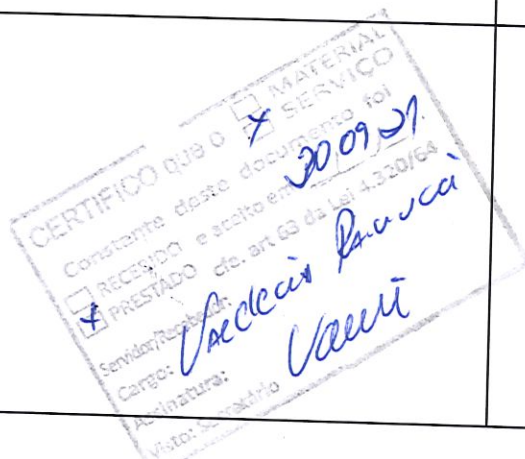 CERTIFICO que o MATERIAL
x SERVIÇO
Constante deste documento foi
RECEBIDO e aceito em 30 09 21
x PRESTADO cfe. art 63 da Lei 4.320/64
Servidor/Recebedor:
Cargo:
Assinatura:
Visto: Secretário